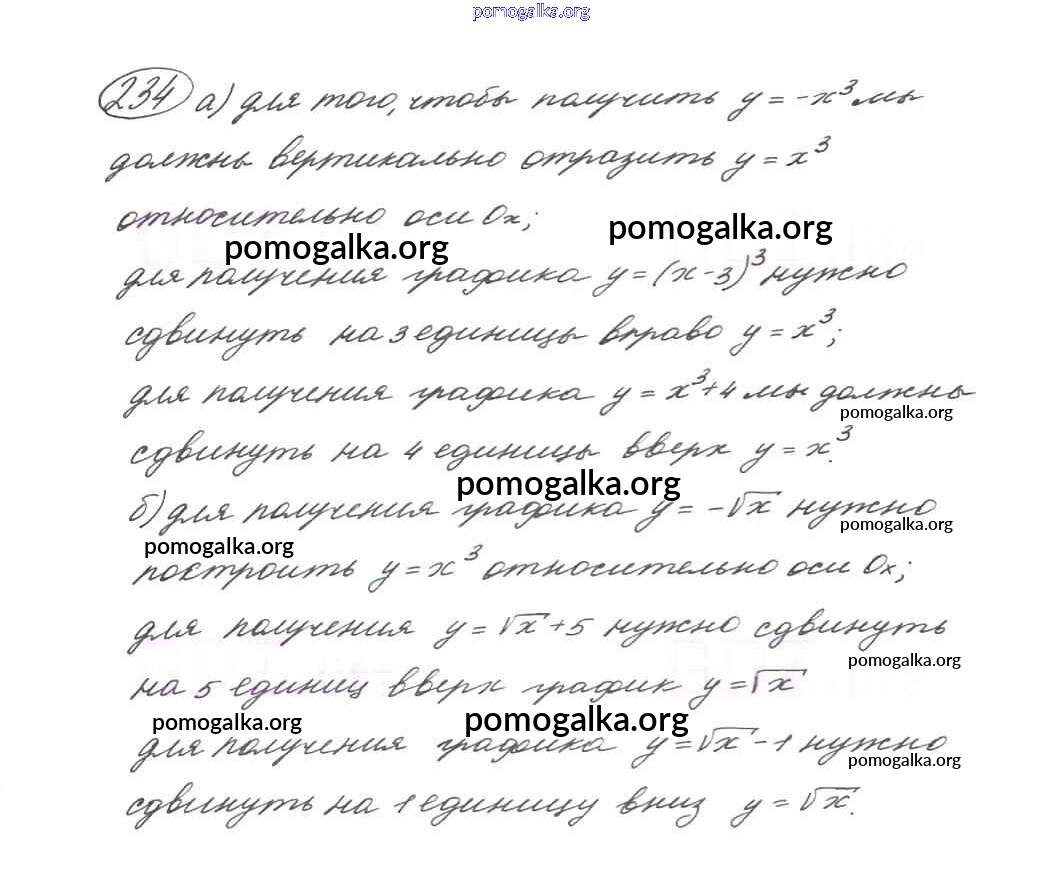 pomogalka.org
234 а) для того, чтобы получить y = -x³ мы
должны вертикально отразить y = x³
относительно оси Ox;
pomogalka.org pomogalka.org
для получения графика y = (x - 3)³ нужно
сдвинуть на 3 единицы вправо y = x³;
для получения графика y = x³ + 4 мы должны
pomogalka.org
сдвинуть на 4 единицы вверх y = x³.
pomogalka.org
б) для получения графика y = -√x нужно
pomogalka.org
pomogalka.org
построить y = x³ относительно оси Ox;
для получения y = √x + 5 нужно сдвинуть
pomogalka.org
на 5 единиц вверх график y = √x
pomogalka.org pomogalka.org
для получения графика y = √x - 1 нужно
pomogalka.org
сдвинуть на 1 единицу вниз y = √x.